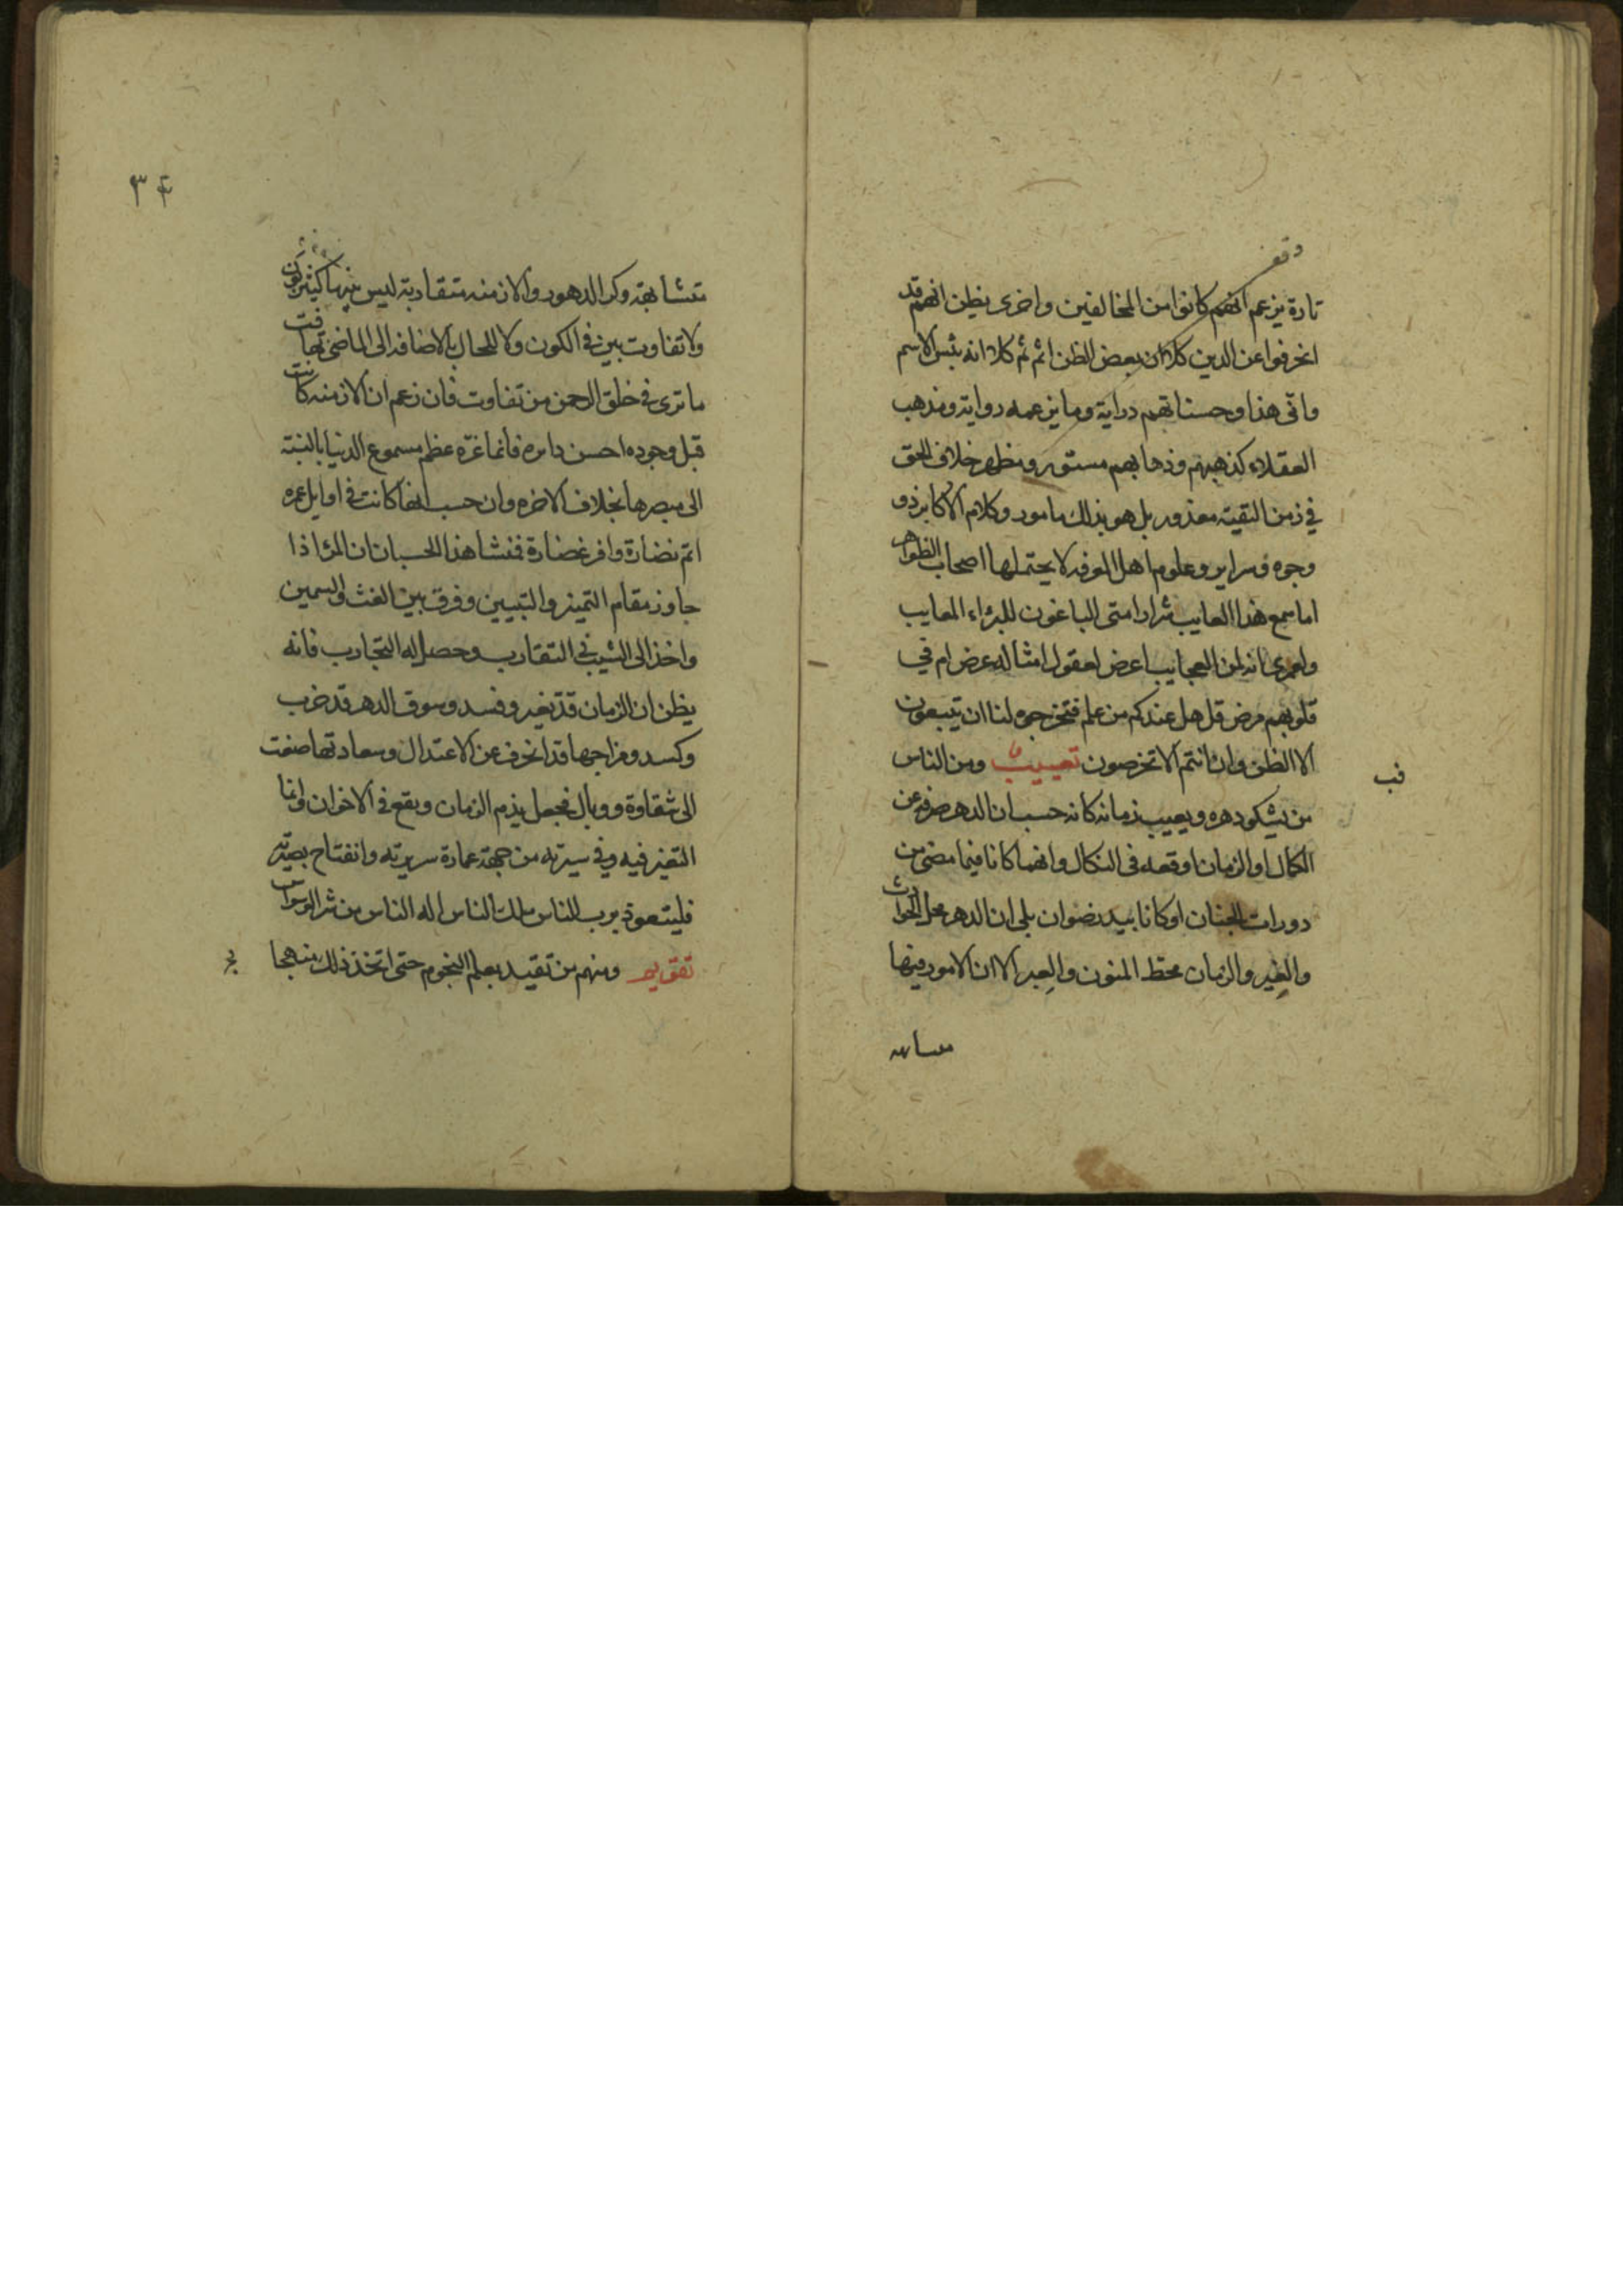 وقف
تارة يزعم انهم كانوا من المخالفين واخرى يظن انهم قد
انحرفوا عن الدين كلا ان بعض الظن اثم ثم كلا انه بئس الاسم
وانى هذا وحسناتهم دراية وما يزعمه رواية ومذهب
العقلاء كذهبهم وذهابهم مستور ومظهر خلاف الحق
في زمن التقية معذور بل هو بذلك مامور وكلام الاكابر ذو
وجوه وسراير وعلوم اهل المعرفه لا يحتملها اصحاب الظواهر
اما سمع هذا العايب شرار امتى الباغون للبراء المعايب
ولعمرى انه لمن العجايب اعرض لعقول امثاله عرض ام في
قلوبهم مرض قل هل عندكم من علم فتخرجوه لنا ان تتبعون
الا الظن وان انتم الا تخرصون تعييب ومن الناس
قب
من يشكو دهره ويعيب زمانه كانه حسب ان الدهر صرفه عن
الكمال او الزمان اوقعه فى النكال وانهما كانا فيما مضى من
دورات الجنان او كانا بيد رضوان بلى ان الدهر محل الحوادث
والغير والزمان محط المنون والعبر الا ان الامور فيها
متسابهه
٣٤
متشابهة وكر الدهور والازمنه متقاربة ليس بينها كثير بون
ولا تفاوت بين في الكون ولا للحال بالاضافه الى الماضى تهافت
ما ترى في خلق الرحمن من تفاوت فان زعم ان الازمنه كانت
قبل وجوده احسن دايره فانما غرّه عظم مسموع الدنيا بالنسبة
الى مبصرها بخلاف الاخره وان حسب انها كانت في اوايل عمره
اتم نضارة وافر غضارة فمنشا هذا الحسبان ان المرء اذا
جاوز مقام التميز والتبيين وفرق بين الغث والسمين
واخذ الى الشيب في التقارب وحصل له التجارب فانه
يظن ان الزمان قد تغير وفسد وسوق الدهر قد خرب
وكسد ومزاجها قد انحرف عن الاعتدال وسعادتها صنعت
الى شقاوة ووبال فجعل يذم الزمان ويقع في الاخوان وانما
التغير فيه وفي سيرته من جهة عمارة سريرته وانفتاح بصيرته
فليتعوذ برب الناس ملك الناس اله الناس من شر الوسواس
تقويم ومنهم من تقيد بعلم النجوم حتى اتخذ ذلك منهجا